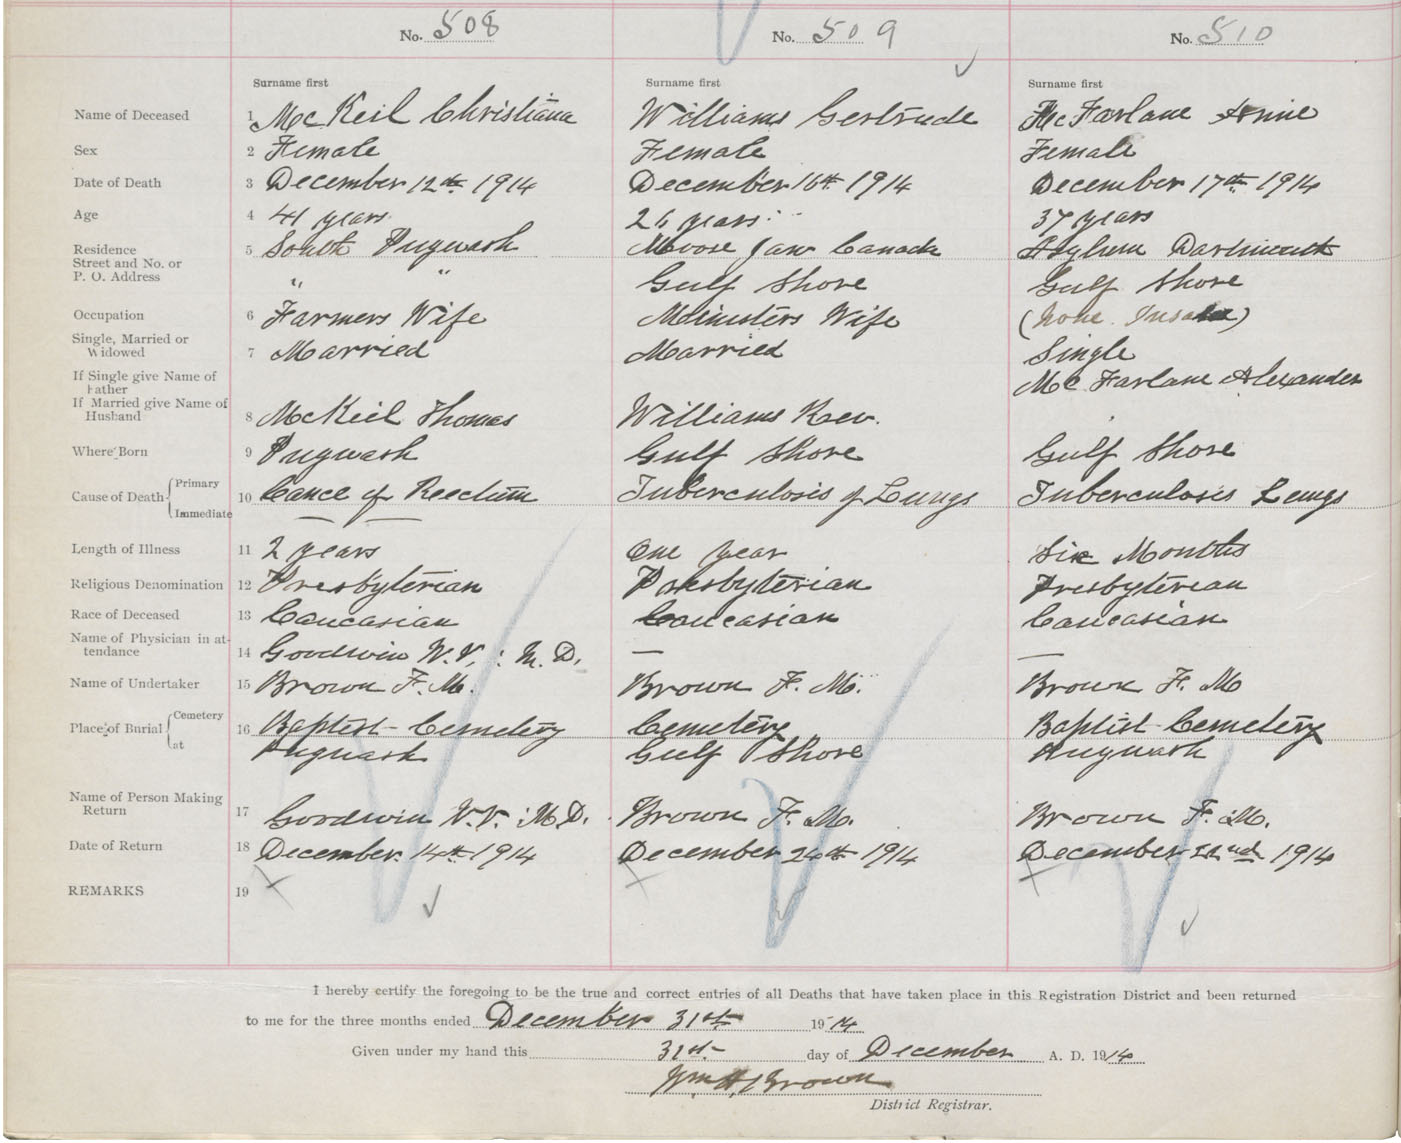 No. 508 No. 509 No. 510
Surname first Surname first Surname first
Name of Deceased 1 McKeil Christiana Williams Gertrude McFarlane Annie
Sex 2 Female Female Female
Date of Death 3 December 12th 1914 December 16th 1914 December 17th 1914
Age 4 41 years 26 years 37 years
Residence 5 South Pugwash Moose Jaw Canada Asylum Dartmouth
Street and No. or
P. O. Address " " Gulf Shore Gulf Shore
Occupation 6 Farmers Wife Ministers Wife (None Insane)
Single, Married or
Widowed 7 Married Married Single
If Single give Name of
Father McFarlane Alexander
If Married give Name of
Husband 8 McKeil Thomas Williams Rev.
Where Born 9 Pugwash Gulf Shore Gulf Shore
Cause of Death Primary
10 Cance of Rectum Tuberculosis of Lungs Tuberculosis Lungs
Immediate
Length of Illness 11 2 years One year Six Months
Religious Denomination 12 Presbyterian Presbyterian Presbyterian
Race of Deceased 13 Caucasian Caucasian Caucasian
Name of Physician in at-
tendance 14 Goodwin W.V. : M.D. — —
Name of Undertaker 15 Brown F. M. Brown F. M. Brown F. M
Place of Burial Cemetery 16 Baptist Cemetery Cemetery Baptist Cemetery
at Pugwash Gulf Shore Pugwash
Name of Person Making
Return 17 Goodwin V.V. : M.D. Brown F. M. Brown F. M.
Date of Return 18 December 14th 1914 December 24th 1914 December 22nd 1914
REMARKS 19
I hereby certify the foregoing to be the true and correct entries of all Deaths that have taken place in this Registration District and been returned
to me for the three months ended December 31st 1914
Given under my hand this 31st day of December A. D. 1914
Wm H. Brown
District Registrar.